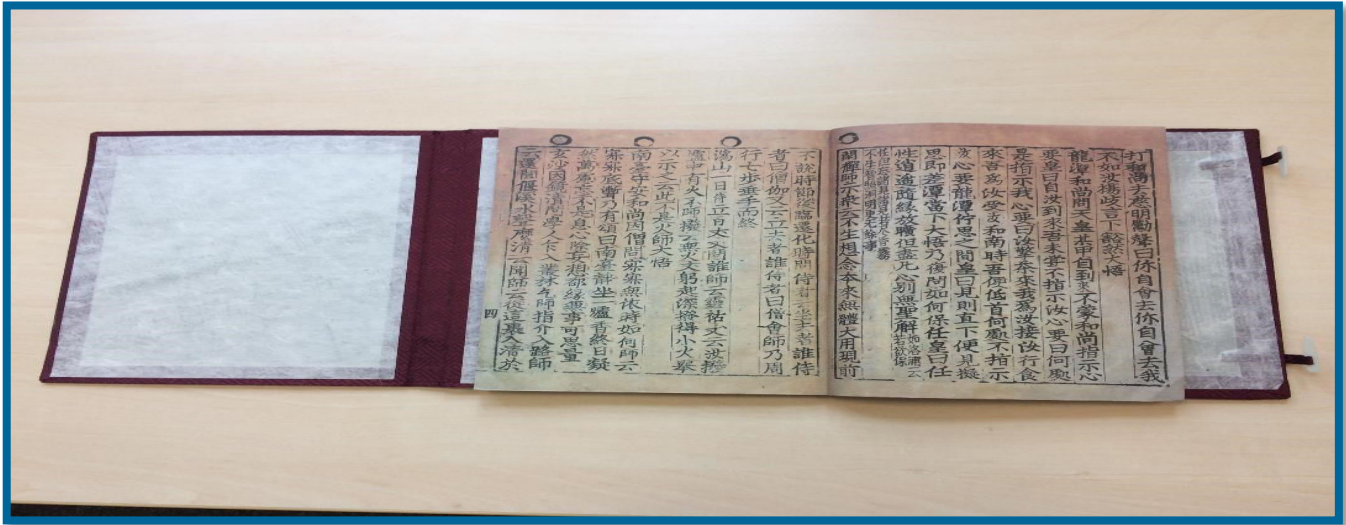 打去明勵聲曰你自會去你自會去我
不如汝揚歧言下豁然大悟
龍潭和尚問天皇某甲自到來不蒙和尚指示心
要皇曰自汝到來吾未嘗不指示汝心要曰何處
是指示我心要曰汝擎茶來我爲汝接汝行食
來吾爲汝受汝和南時吾便低首何處不指示
汝心要龍潭佇思之間皇曰見則直下便見擬
思即差潭當下大悟乃復問如何保任皇曰任
性逍遙隨緣放曠但盡凡心別無聖解如洛浦云若欲保
禪師示衆云不生想念本來無體大用現前
不說時節汝臨遷化時問侍者云坐去者誰侍
者曰僧伽又云立去者誰侍者曰僧會師乃周
行七步垂手而終
潙山一日侍立百丈丈問誰師云靈祐丈云汝撥
爐中有火不師撥云無火丈躬起深撥得小火擧
以示之云此不是火師大悟
南臺守安和尚因僧問寂寂無依時如何師云
寂寂底聻乃有頌曰南臺靜坐一爐香終日凝
然萬慮忘不是息心除妄想都緣無事可思量
玄沙因鏡淸問學人乍入叢林乞師指介入路師
云還聞偃溪水聲麽淸云聞師云從這裏入淸於
四